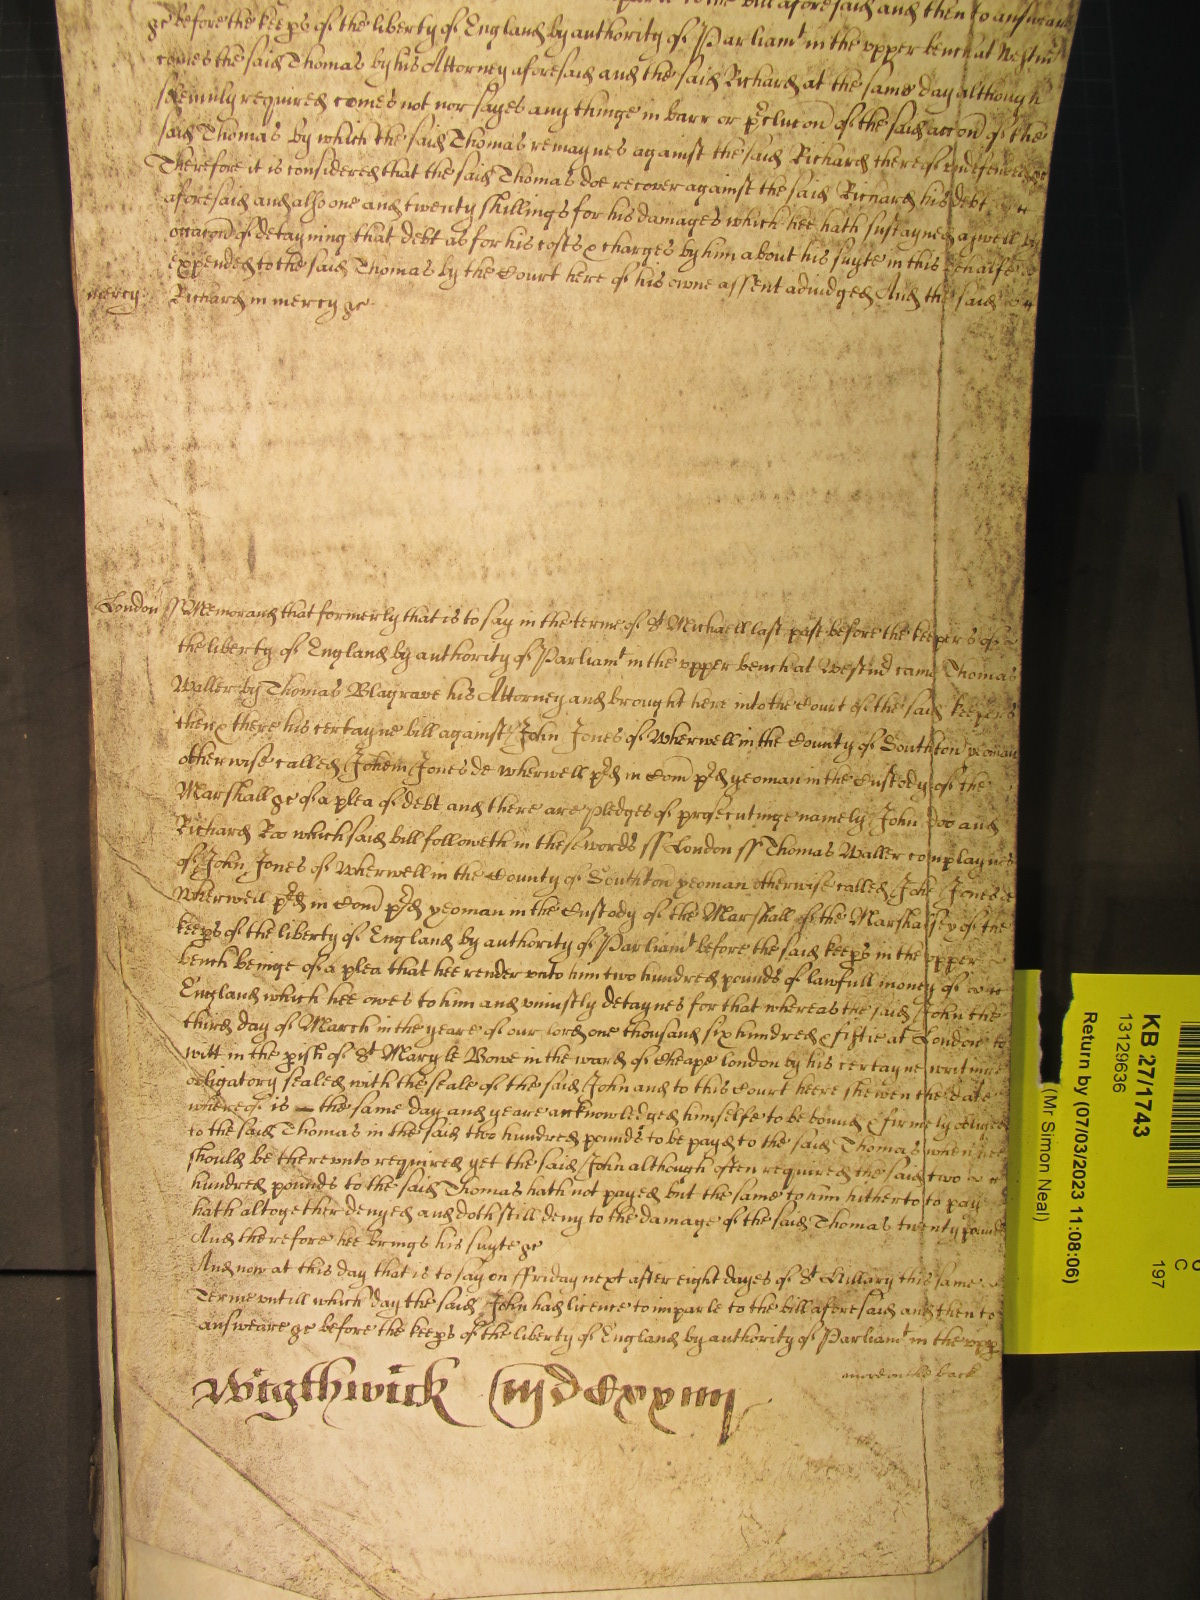 to the bill aforesaid and then to answeare
&c before the keeps of the liberty of England by authority of Parliamt in the upper bench at Westm
comes the said Thomas by his Attorney aforesaid and the said Richard at the same day although
solemnly required comes not nor sayes any thinge in barr or pclucon of the said accon of the
said Thomas by which the said Thomas remaynes against the said Richard thereof undefended
Therefore it is considered that the said Thomas doe recover against the said Richard his debt
aforesaid and also one and twenty shillings for his damages which hee hath sustayned aswell by
occacon of detayning that debt as for his costs & charges by him about his suyte in this behalfe
expended to the said Thomas by the Court here of his owne assent adiudged And the said
mercy Richard in mercy &c
London ss Memorand that formerly that is to say in the terme of St Michaell last past before the keepers of
the liberty of England by authority of Parliamt in the upper bench at Westm came Thomas
Waller by Thomas Blagrave his Attorney and brought here into the Court of the said keepers
then & there his certayne bill against John Jones of Wherwell in the County of Southton yeoman
otherwise called Johem Jones de Wherwell pd in Com pd yeoman in the Custody of the
Marshall &c of a plea of debt and there are pledges of prosecutinge namely John Doo and
Richard Roo which said bill followeth in these words ss London ss Thomas Waller complaynes
of John Jones of Wherwell in the County of Southton yeoman otherwise called Johe Jones de
Wherwell pd in Com pd yeoman in the Custody of the Marshall of the Marshalsey of the
keeps of the liberty of England by authority of Parliamt before the said keeps in the upper
bench beinge of a plea that hee render unto him two hundred pounds of lawfull money of
England which hee owes to him and uniustly detaynes for that whereas the said John the
third day of March in the yeare of our lord one thousand six hundred & fiftie at London to
witt in the pish of St Mary le Bowe in the ward of Cheape London by his certayne writinge
obligatory sealed with the seale of the said John and to this Court heere shewen the date
whereof is the same day and yeare acknowledged himselfe to be bound & firmely obliged
to the said Thomas in the said two hundred pounds to be payd to the said Thomas when hee
should be thereunto required yet the said John although often required the said two
hundred pounds to the said Thomas hath not payed but the same to him hitherto to pay
hath altogether denyed and doth still deny to the damage of the said Thomas twenty pounds
And therefore hee brings his suyte &c
And now at this day that is to say on ffriday next after eight dayes of St Hillary this same
Terme untill which day the said John had licence to imparle to the bill aforesaid and then to
answeare &c before the keeps of the liberty of England by authority of Parliamt in the upp
more on the back
Wigthwick
KB 27/1743
13129636
Return by (07/03/2023 11:08:06)
(Mr Simon Neal)
C
197